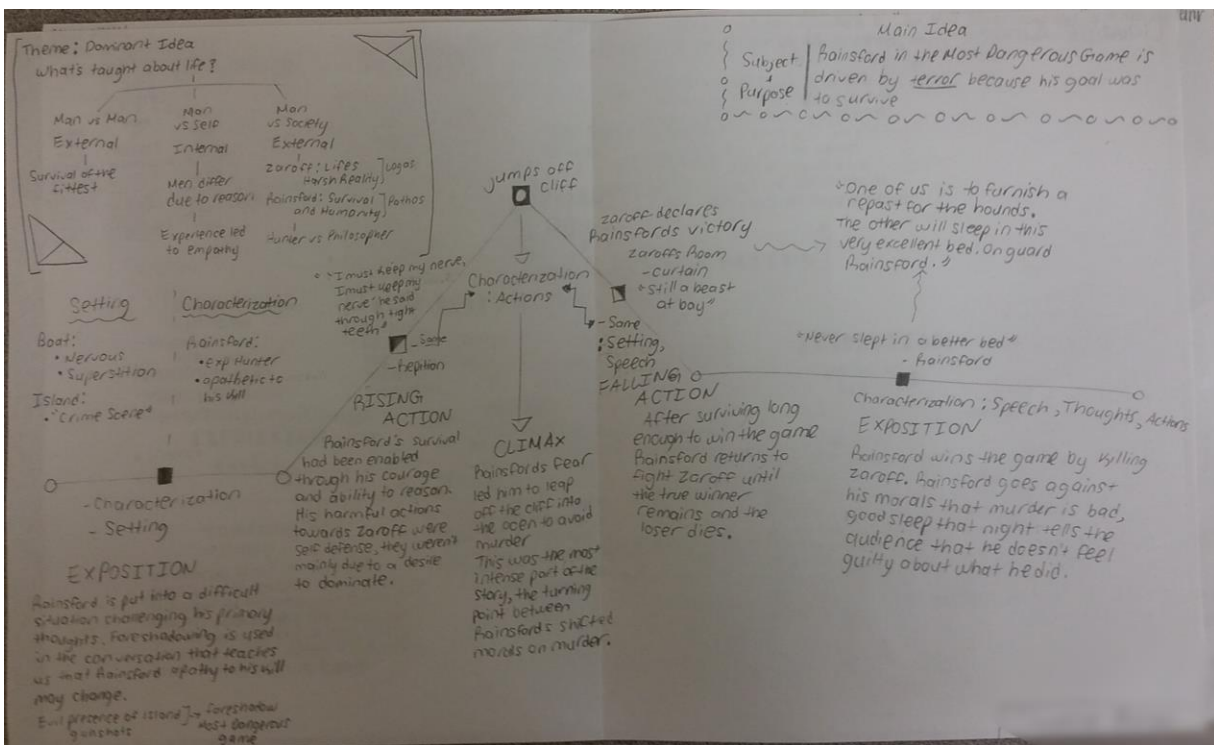 Theme: Dominant Idea
What's taught about life?
Man vs Man
External
Survival of the
fittest
Man
vs Self
Internal
Men differ
due to reason
Experience led
to empathy
Man
vs Society
External
Zaroff: Lifes
Harsh Reality] Logos
Rainsford: Survival
and Humanity] Pathos
Hunter vs Philosopher
Main Idea
Subject
+
Purpose
Rainsford in the Most Dangerous Game is
driven by terror because his goal was
to survive
Setting
Boat:
• Nervous
• Superstition
Island:
• "Crime Scene"
Characterization
Rainsford:
• Exp Hunter
• apathetic to
his kill
- Characterization
- Setting
EXPOSITION
Rainsford is put into a difficult
situation challenging his primary
thoughts. Foreshadowing is used
in the conversation that teaches
us that Rainsford apathy to his kill
may change.
Evil presence of island
gunshots
foreshadow
Most Dangerous
game
"I must keep my nerve,
I must keep my
nerve' he said
through tight
teeth"
- Same
RISING
ACTION
Rainsford's survival
had been enabled
through his courage
and ability to reason.
His harmful actions
towards Zaroff were
self defense, they weren't
mainly due to a desire
to dominate.
jumps off
cliff
Characterization
: Actions
CLIMAX
Rainsfords fear
led him to leap
off the cliff into
the ocen to avoid
murder
This was the most
intense part of the
story, the turning
point between
Rainsfords shifted
morals on murder.
Zaroff declares
Rainsfords victory
Zaroffs Room
- curtain
"still a beast
at bay"
- Same
: Setting,
Speech
FALLING
ACTION
After surviving long
enough to win the game
Rainsford returns to
fight Zaroff until
the true winner
remains and the
loser dies.
"One of us is to furnish a
repast for the hounds.
The other will sleep in this
very excellent bed. On guard
Rainsford."
"Never slept in a better bed"
- Rainsford
Characterization: Speech, Thoughts, Actions
EXPOSITION
Rainsford wins the game by killing
Zaroff. Rainsford goes against
his morals that murder is bad,
good sleep that night tells the
audience that he doesn't feel
guilty about what he did.